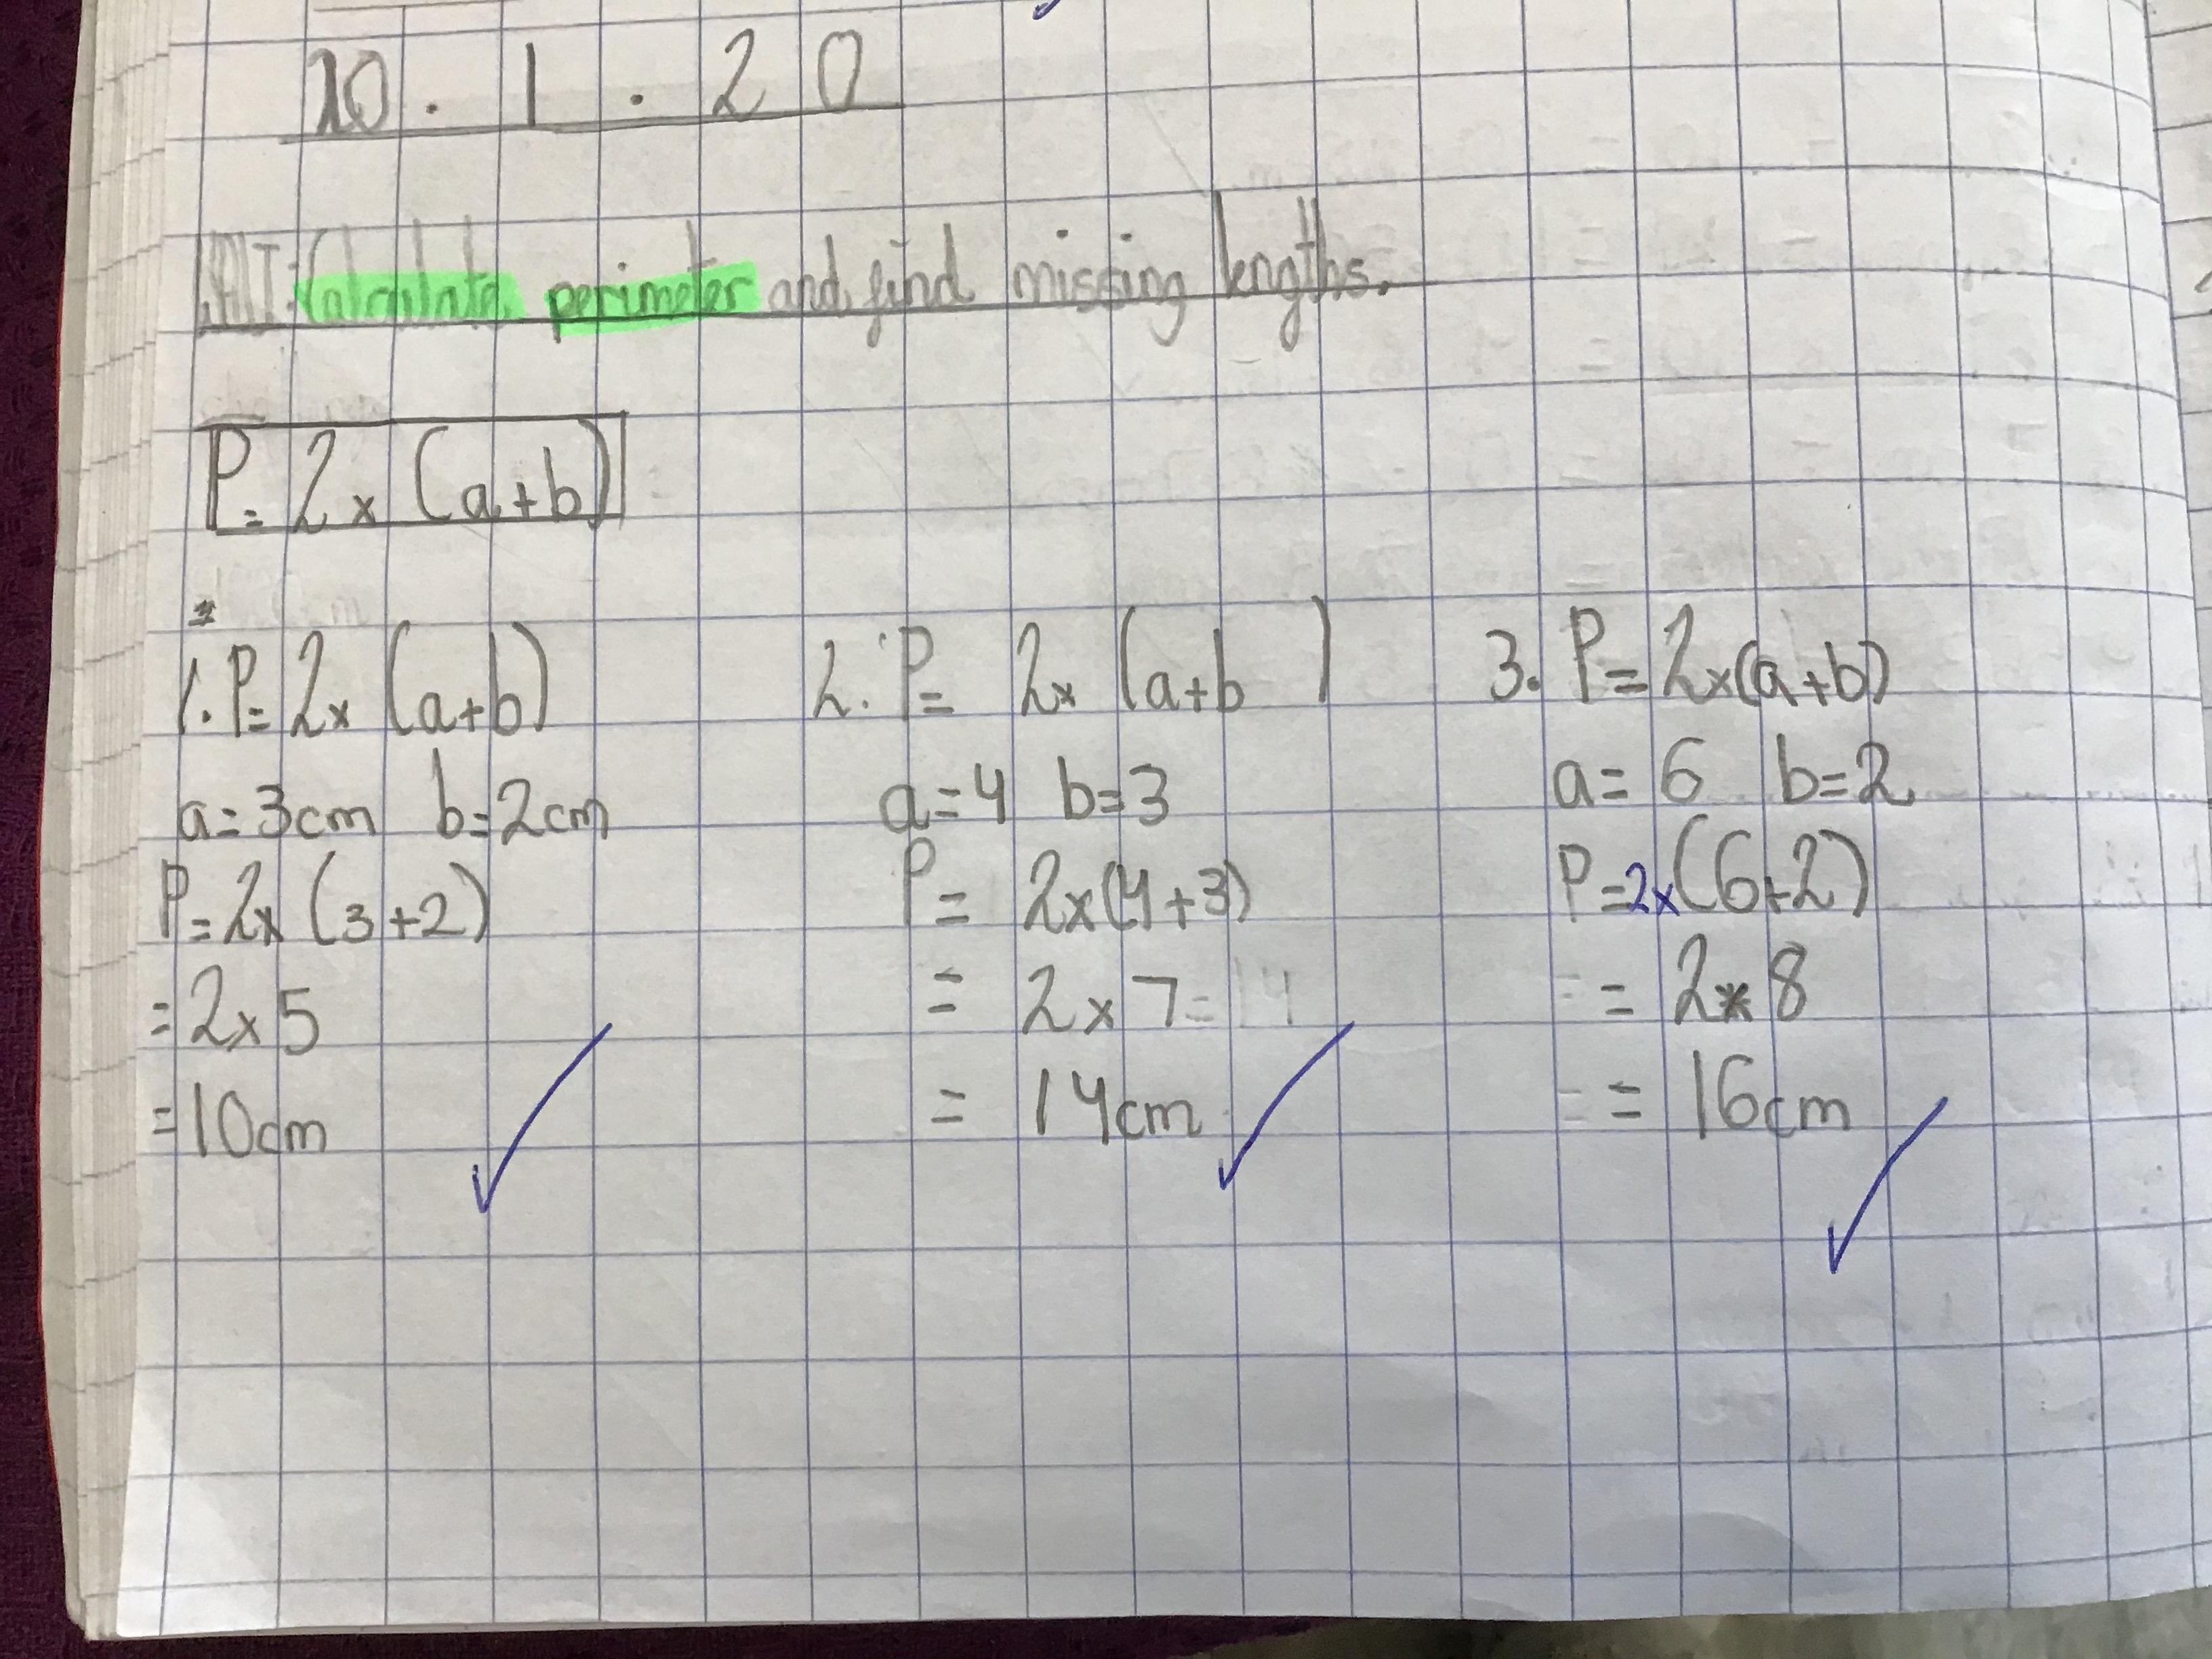 10 . 1 . 20
WALT: Calculate perimeter and find missing lengths.
P = 2 x (a+b)
1. P = 2 x (a+b)
a = 3cm b = 2cm
P = 2x (3+2)
= 2 x 5
= 10cm
2. P = 2x (a+b)
a = 4 b = 3
P = 2x(4+3)
= 2 x 7 = 14
= 14cm
3. P = 2x(a+b)
a = 6 b = 2
P = 2x (6+2)
= 2x8
= 16cm